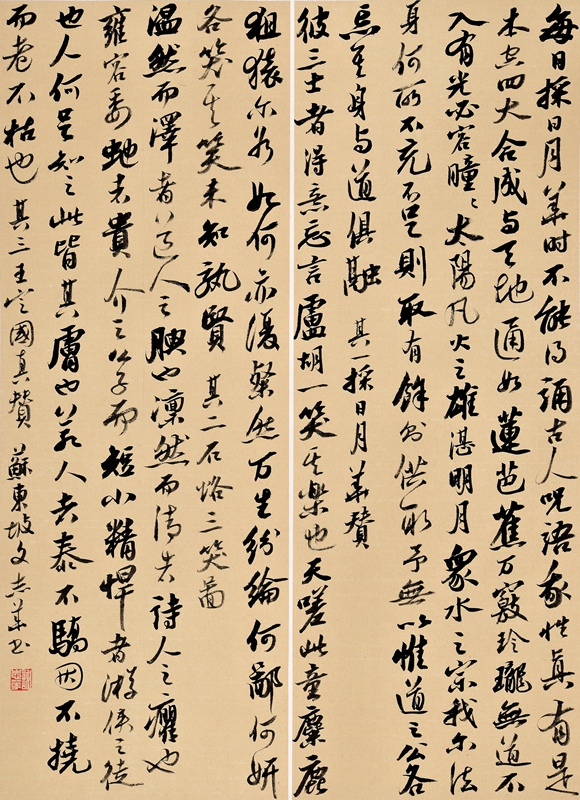 每日採日月華時不能得誦古人咒語我性真有是
本空四大合成与天地通如蓮芭蕉万竅玲瓏無道不
入有光必容曈〻太陽凡火之雄湛明月衆水之宗我尔法
身何所不充不足則取有餘則供取予無心惟道之公各
忘其身与道俱融 其一採日月華贊
彼三士者得意忘言盧胡一笑其樂也天嗟此童麋鹿
狙猿尔為如何亦復粲然万生紛綸何鄙何妍
各笑其笑未知孰賢 其二石恪三笑圖
温然而澤者道人之腴也凛然而清者詩人之癯也
雍容委蛇者貴介之公子而短小精悍者游俠之徒
也人何足知之此皆其膚也若人者泰不驕困不撓
而老不枯也 其三王定國真贊 蘇東坡文 志華书